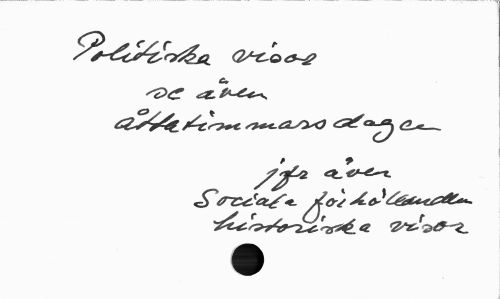 Politiska visor
se även
åttatimmarsdagen
jfr även
Sociala förhållanden
historiska visor